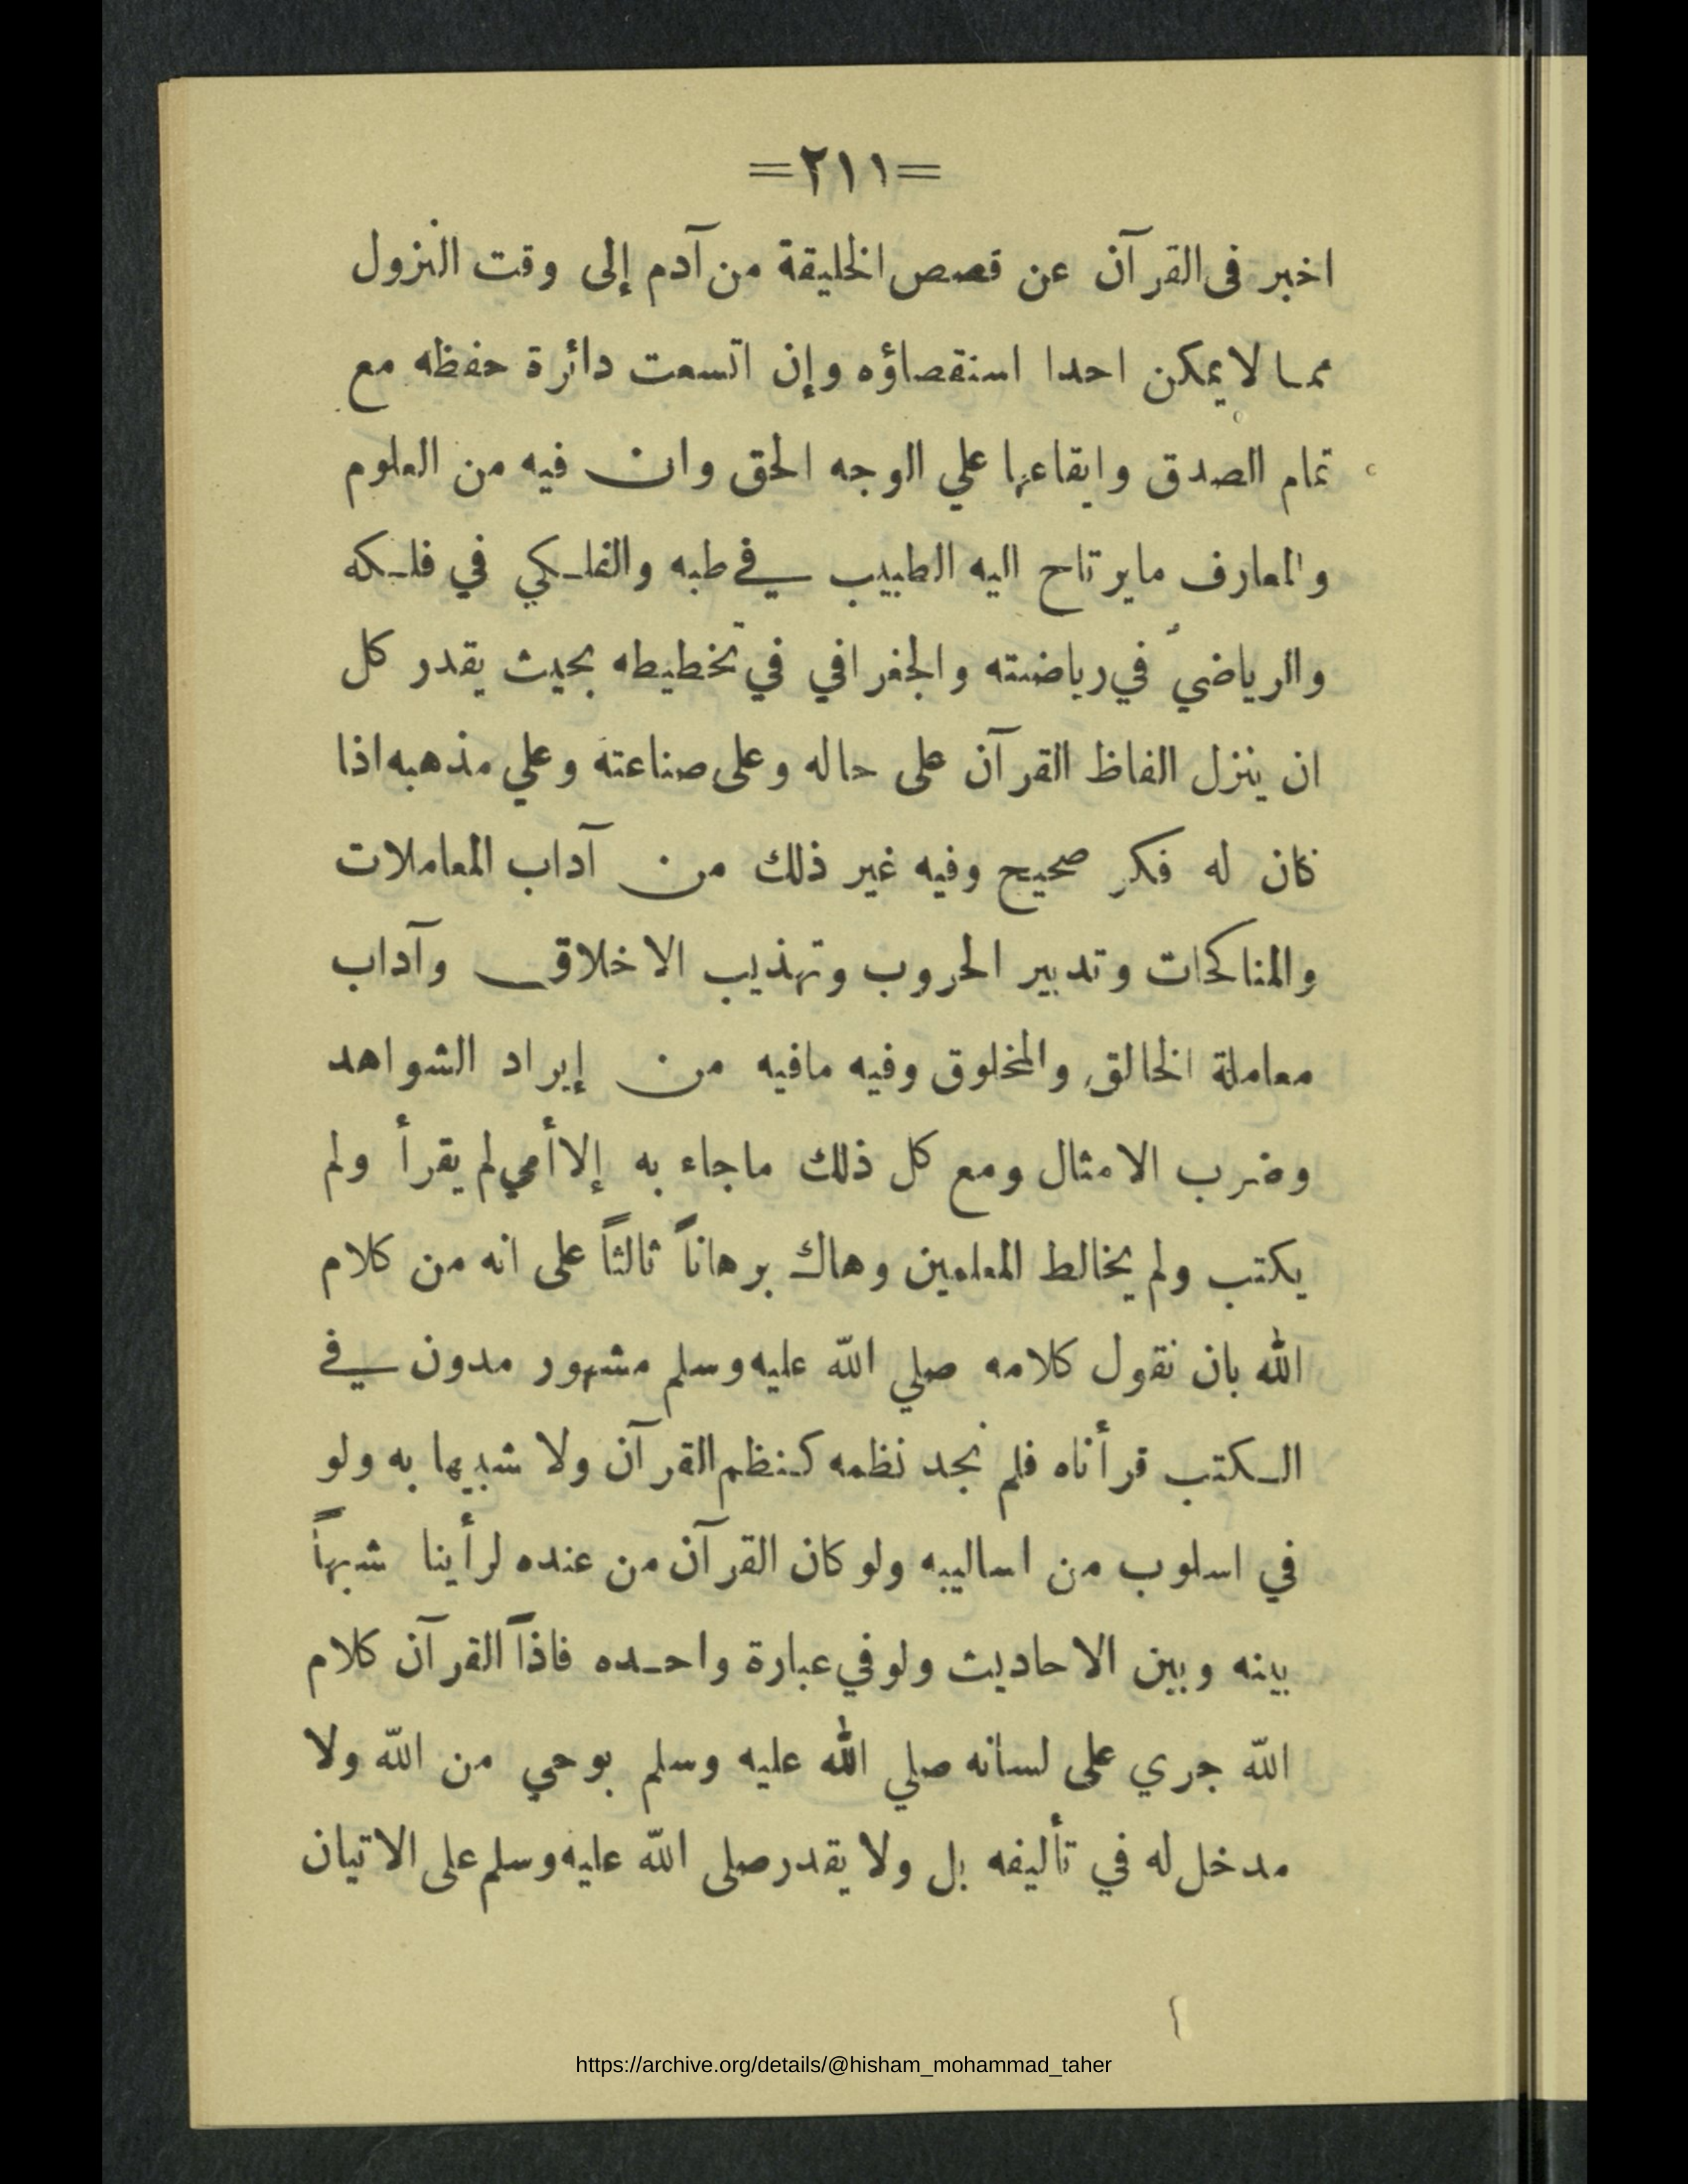 =٢١١=
اخبر فى القرآن عن قصص الخليقة من آدم إلى وقت النزول
مما لا يمكن احدا استقصاؤه وإن اتسعت دائرة حفظه مع
تمام الصدق وايقاعها علي الوجه الحق وان فيه من العلوم
والمعارف مايرتاح اليه الطبيب في طبه والفلكي في فلكه
والرياضي في رياضته والجغرافي في تخطيطه بحيث يقدر كل
ان ينزل الفاظ القرآن على حاله وعلى صناعته وعلي مذهبه اذا
كان له فكر صحيح وفيه غير ذلك من آداب المعاملات
والمناكحات وتدبير الحروب وتهذيب الاخلاق وآداب
معاملة الخالق والمخلوق وفيه مافيه من إيراد الشواهد
وضرب الامثال ومع كل ذلك ماجاء به إلا أمي لم يقرأ ولم
يكتب ولم يخالط المعلمين وهاك برهاناً ثالثاً على انه من كلام
الله بان نقول كلامه صلي الله عليه وسلم مشهور مدون في
الكتب قرأناه فلم نجد نظمه كنظم القرآن ولا شبيها به ولو
في اسلوب من اساليبه ولو كان القرآن من عنده لرأينا شبهاً
بينه وبين الاحاديث ولو في عبارة واحده فاذاً القرآن كلام
الله جري على لسانه صلي الله عليه وسلم بوحي من الله ولا
مدخل له في تأليفه بل ولا يقدر صلى الله عليه وسلم على الاتيان
https://archive.org/details/@hisham_mohammad_taher